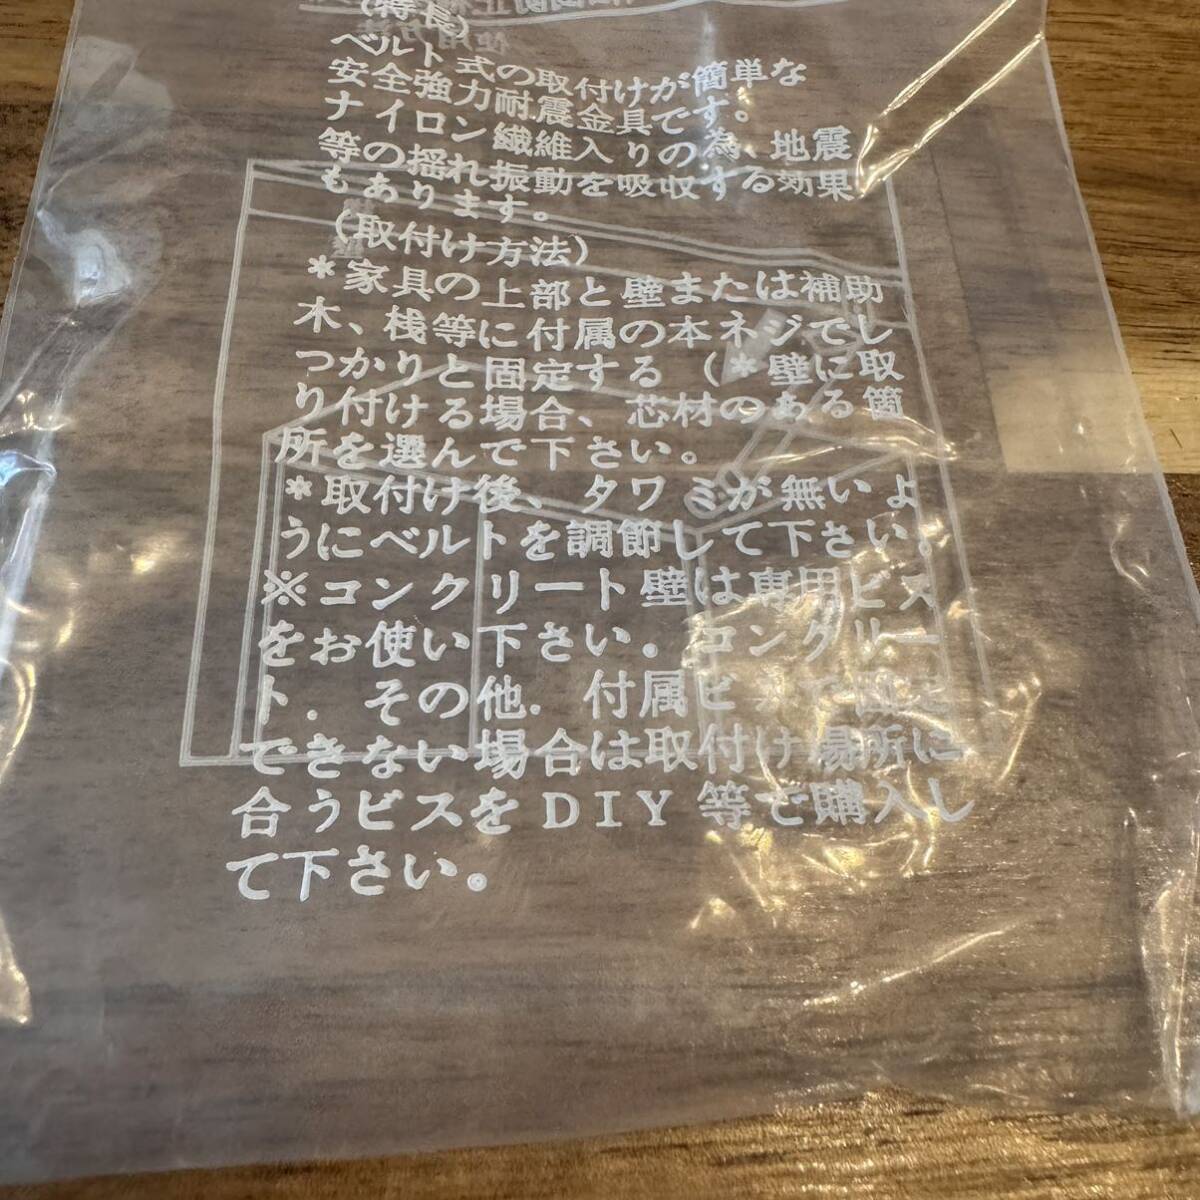 (特長)
ベルト式の取付けが簡単な
安全強力耐震金具です。
ナイロン繊維入りの為、地震
等の揺れ振動を吸収する効果
もあります。
(取付け方法)
*家具の上部と壁または補助
木、桟等に付属の本ネジでし
つかりと固定する（*壁に取
り付ける場合、芯材のある箇
所を選んで下さい。
*取付け後、タワミが無いよ
うにベルトを調節して下さい。
※コンクリート壁は専用ビス
をお使い下さい．コンクリー
ト．その他．付属ビスで固定
できない場合は取付け場所に
合うビスをDIY等で購入し
て下さい。